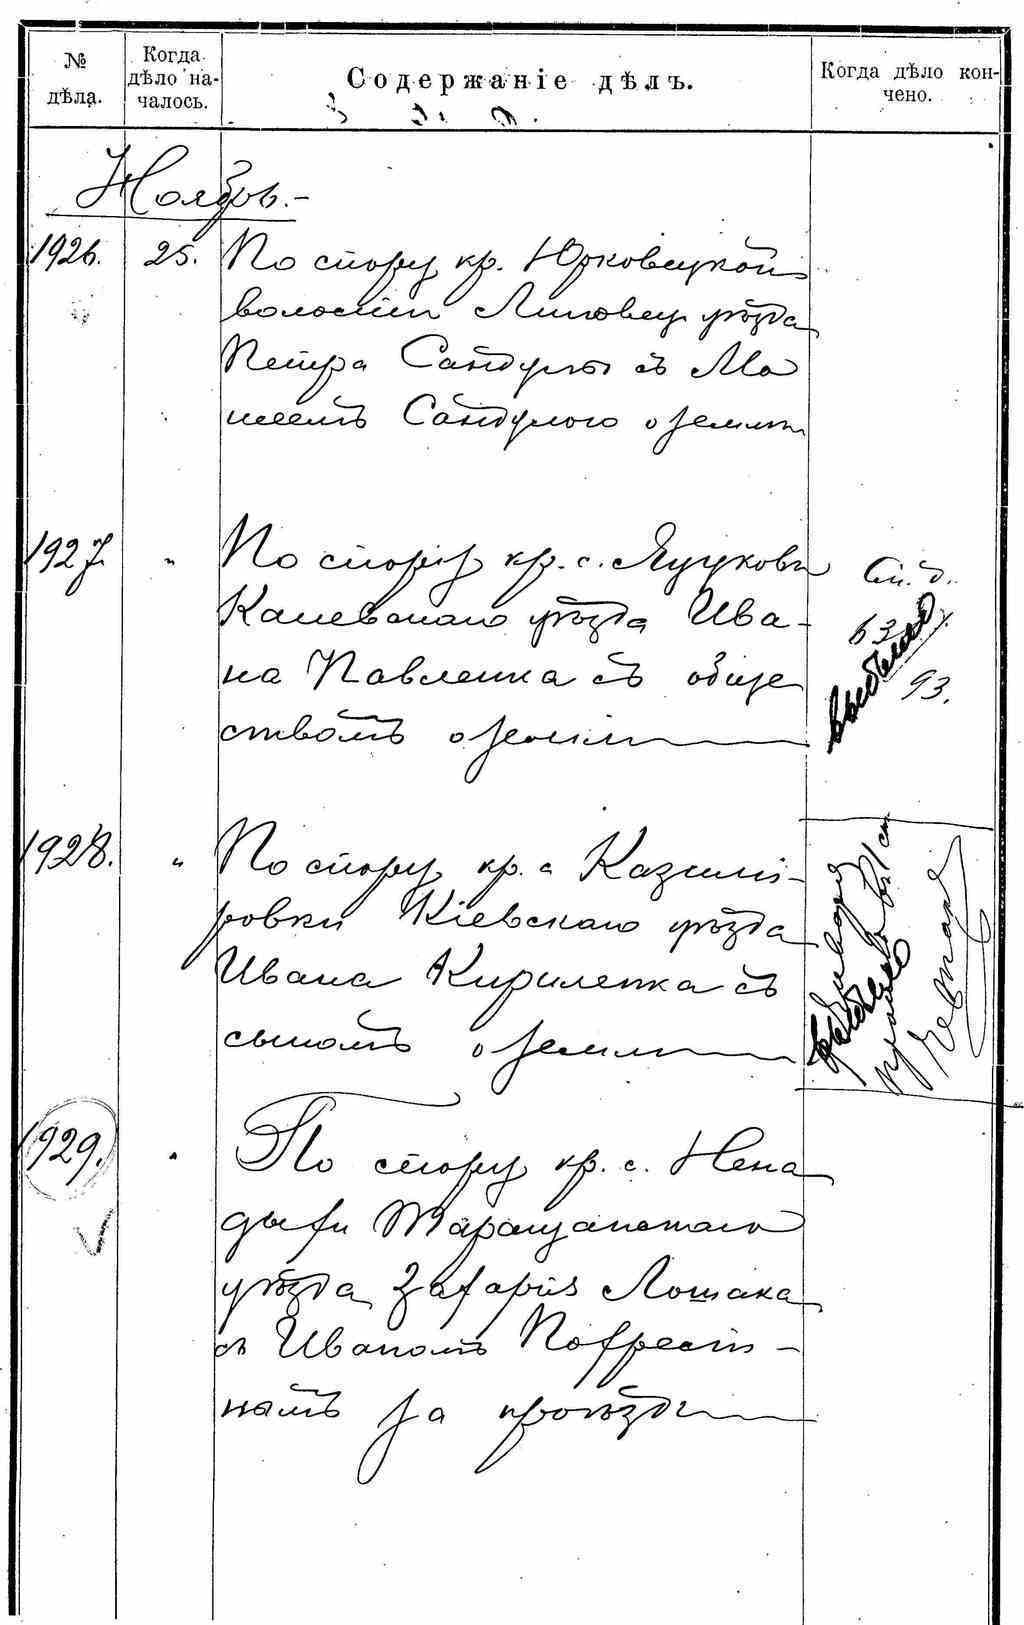 №
дѣла.
Когда
дѣло на-
чалось.
Содержаніе дѣлъ.
Когда дѣло кон-
чено.
Ноябрь.-
1926. 25. По спору кр. Юрковецкой
волости Липовец. уѣзда
Петра Сандулы съ Мо
исеемъ Сандулою о землѣ
1927. " По спору кр. с. Яцуковъ
Каневскаго уѣзда Ива-
на Павленка съ обще
ствомъ о землѣ
См. д.
63
93.
1928. " По спору кр. с Казими-
ровки Кіевскаго уѣзда
Ивана Кириленка съ
сыномъ о землѣ
1929. " По спору кр. с. Нена
дыхи Таращанскаго
уѣзда Захарія Лошака
съ Иваномъ Похрест-
нымъ за проѣздъ